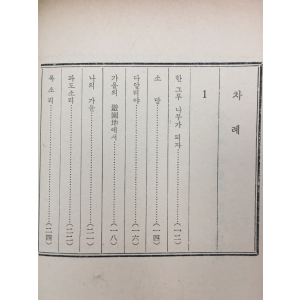 차 례
1
한 그루 나무가 되자……………(一二)
소 망……………(一四)
다알리아……………(一六)
가을의 遊園地에서……………(一八)
나의 가을……………(二一)
파도소리……………(二二)
목 소 리……………(二四)